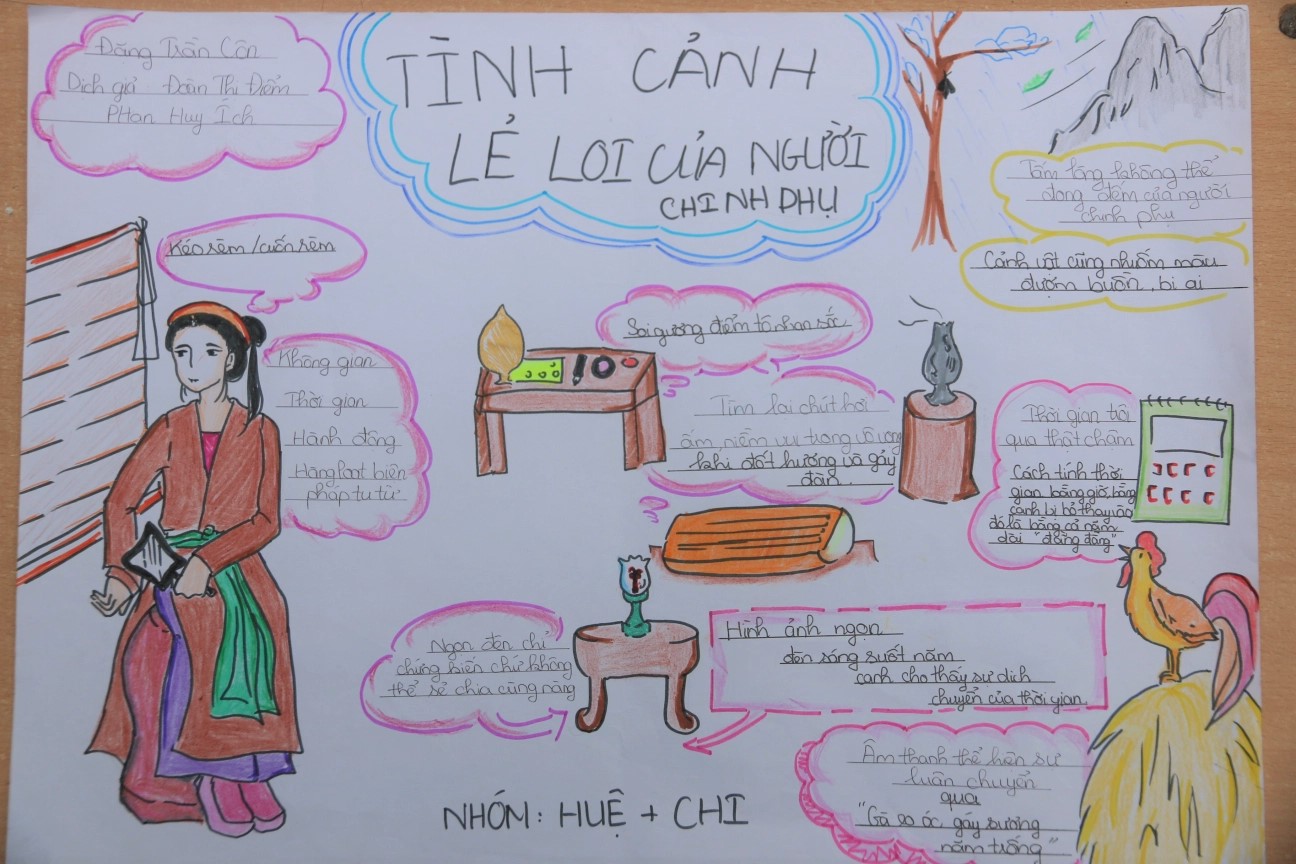 Đăng Trần Côn
Dịch giả Đoàn Thị Điểm
Phan Huy Ích
TÌNH CẢNH
LẺ LOI CỦA NGƯỜI
CHINH PHỤ
Tấm lòng không thể
đong đếm của người
chinh phụ
Cảnh vật cũng nhuốm màu
đượm buồn, bi ai
Kéo rèm/cuốn rèm
Không gian
Thời gian
Hành động
Hàng loạt biện
pháp tu từ
Soi gương điểm tô nhan sắc
Tìm lại chút hơi
ấm, niềm vui trong vô vọng
khi đốt hương và gảy
đàn
Thời gian trôi
qua thật chậm
Cách tính thời
gian bằng giờ, bằng
canh bị bỏ thay vào
đó là bằng cả năm
dài "đằng đẵng"
Ngọn đèn chỉ
chứng kiến chứ không
thể sẻ chia cùng nàng
Hình ảnh ngọn
đèn sáng suốt năm
canh cho thấy sự dịch
chuyển của thời gian
Âm thanh thể hiện sự
luân chuyển
qua
"Gà eo óc, gáy sương
năm trống"
NHÓM: HUỆ + CHI